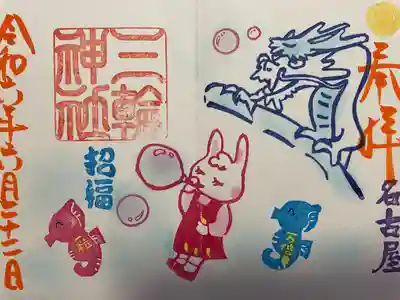 奉拝
名古屋
三輪
神社
招福
令和六年六月二十二日